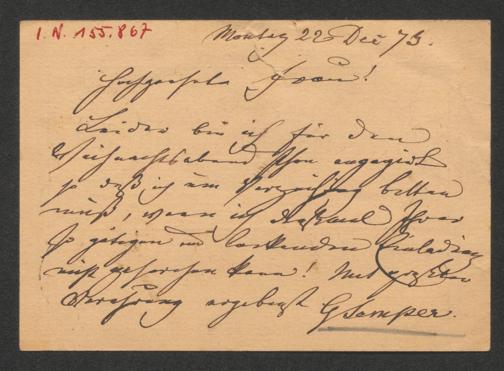 I. N. 155.867
Montag 22 Dec 73.
Hochgeehrte Frau!
Leider bin ich für den
Weihnachtsabend schon engagirt
so daß ich um Verzeihung bitten
muß, wenn ich diesmal Ihrer
so gütigen und lockenden Einladung
nicht gehorchen kann! Mit
Verehrung ergebenst GSemper.